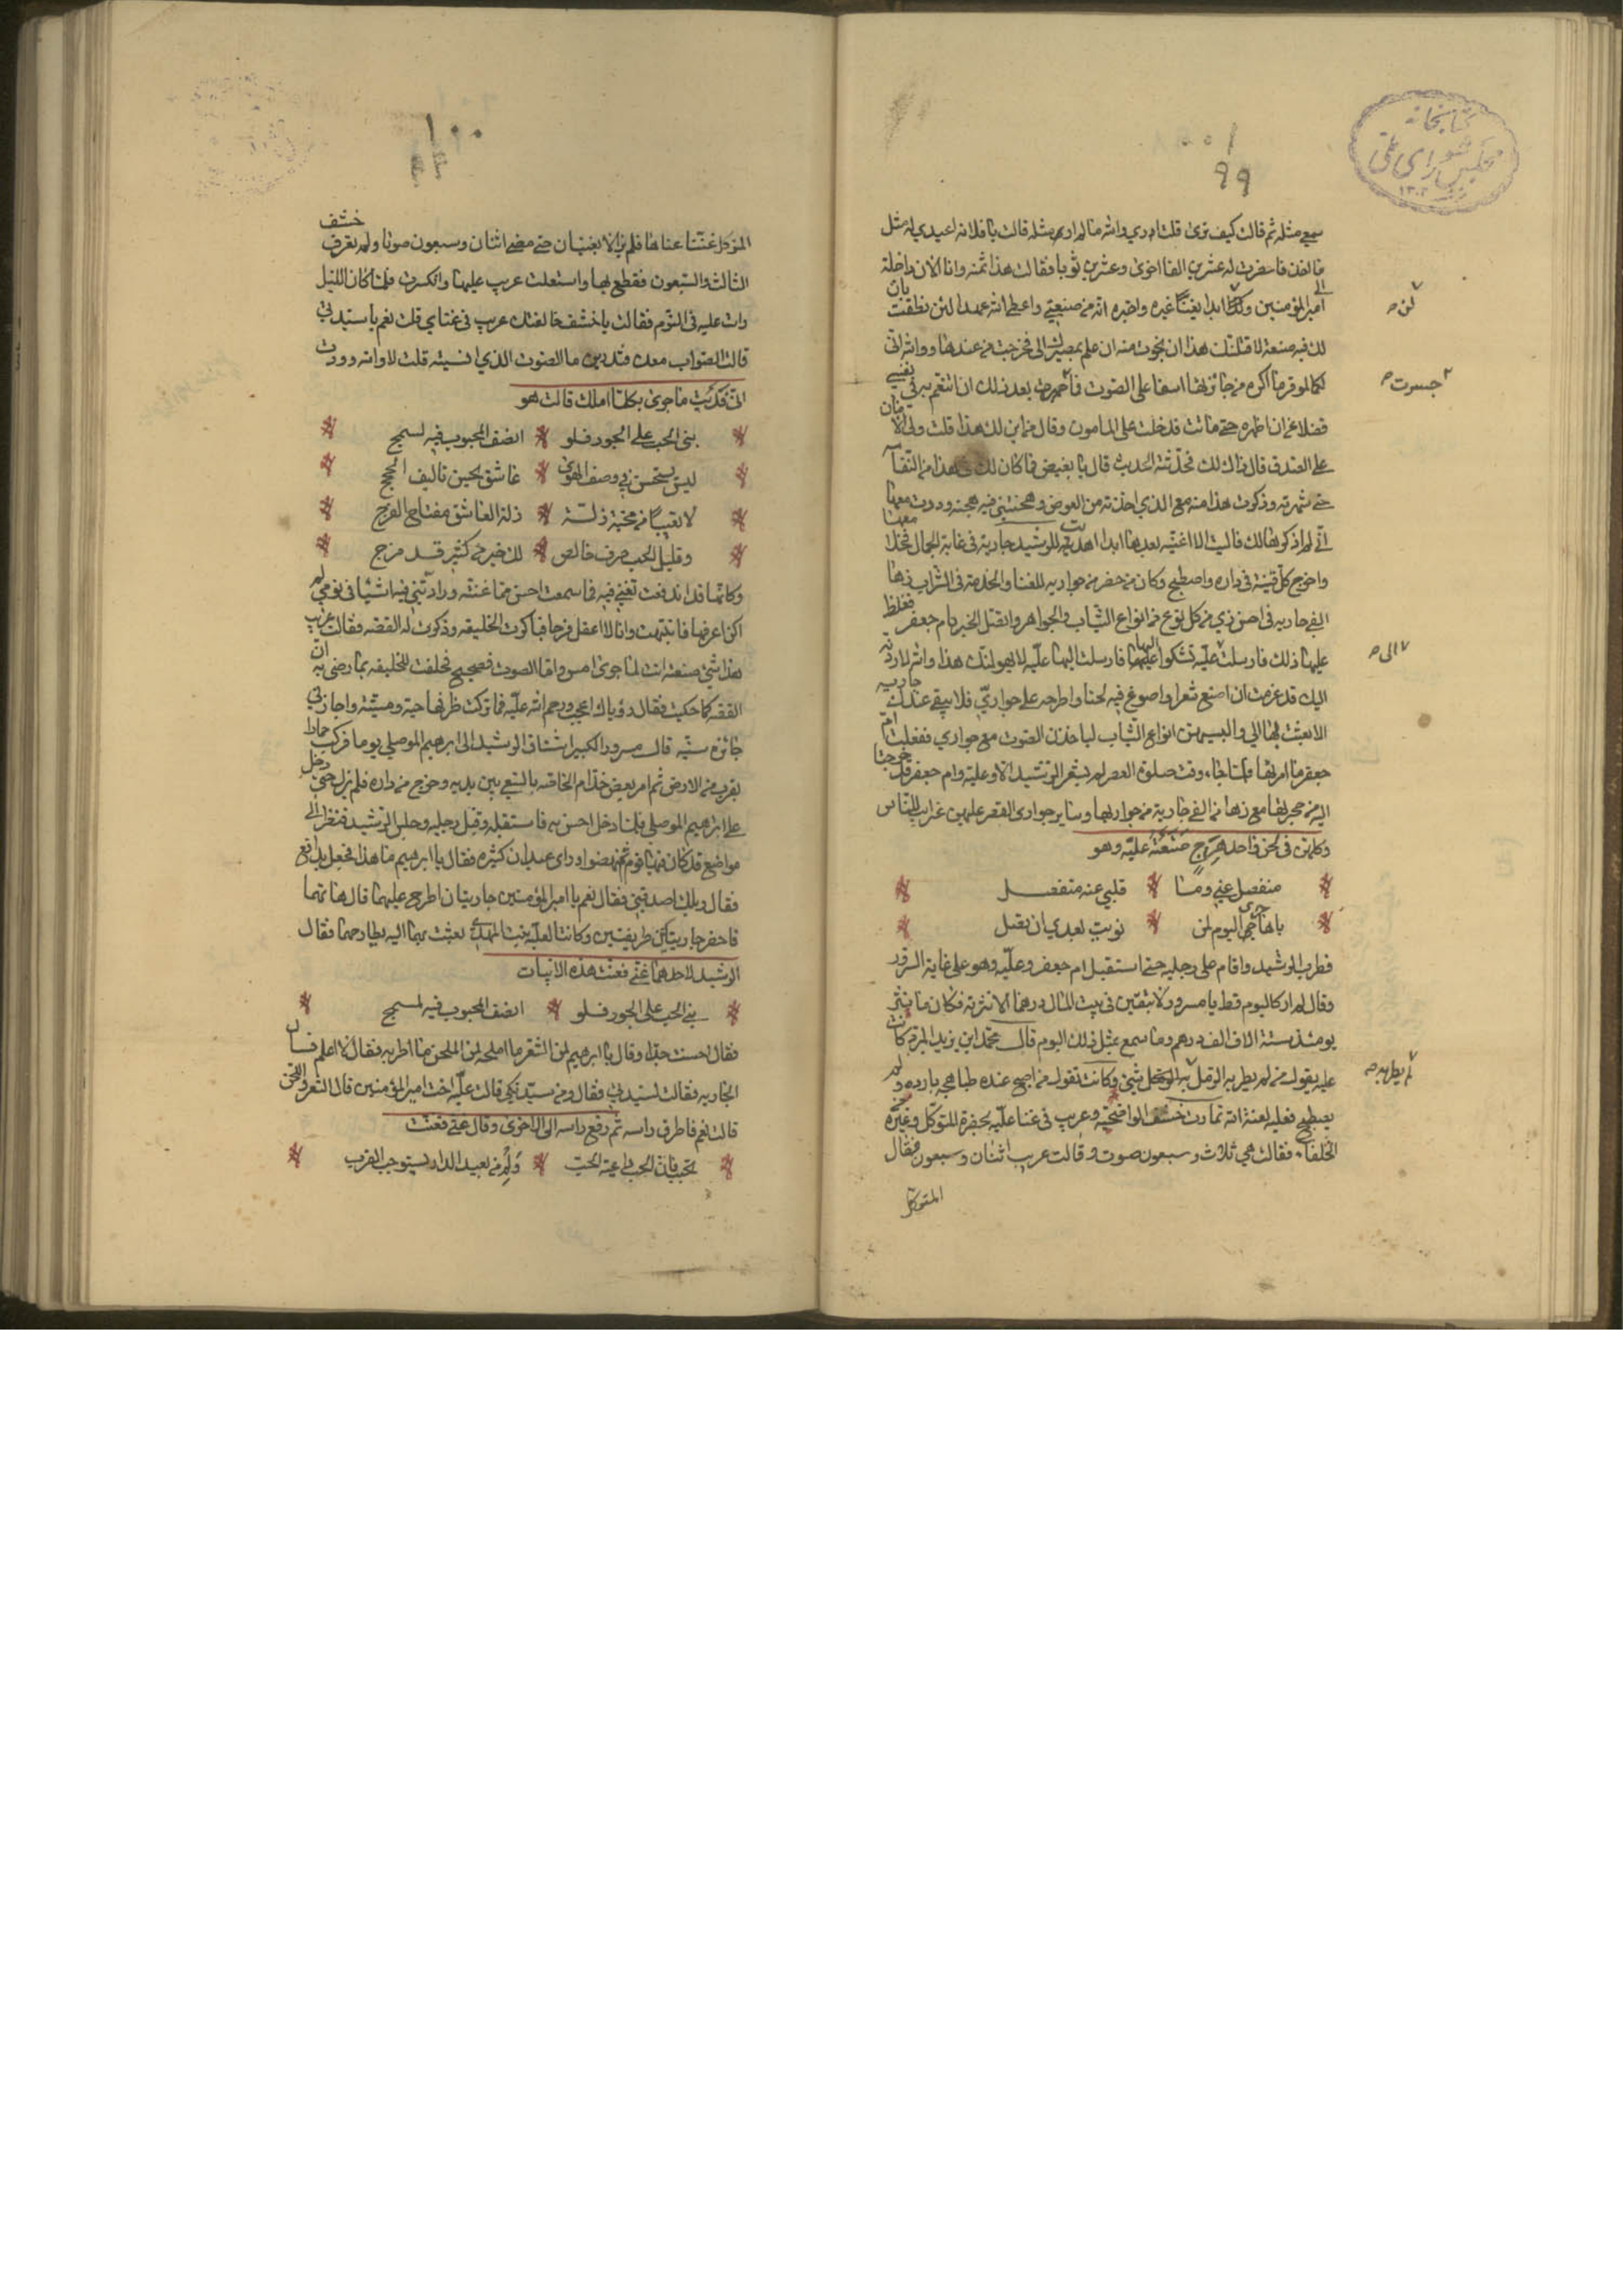 كتابخانه
مجلس شورای ملی
٩٩
سمع مثله ثم قالت كيف ترى قلت والله ما لم ار مثله قالت يا فلانه اعيدي له مثل
ما اخذ فاحضرت له عشرين الفا اخرى وعشرين ثوبا فقالت هذا ثمنه وانا الان داخلة
الى امير المؤمنين ابدا بغناء غيره واخبره انه من صنعتي واعطى الله عهدا لئن نطقت
لك فيه صنعة لاقتلنك هذا ان نجوت منه ان علم بمصيرك الى فخرجت من عندها ووالله اني
على الصوت فما جسرت بعد ذلك ان اتنغم به في نفسي
فضلا عن ان اظهره حتى ماتت فدخلت على المامون وقال من اين لك هذا قلت ولي الامان
على الصدق قال ذاك لك فحدثته الحديث قال يا بغيض فما كان في هذا من النفاسة
حتى شهرته وذكرت هذا منه مع الذي اخذته من العوض وهجنتني فيه هجنة وددت معها
اني لم اذكره لك فاليت الا اغنيه بعدها ابدا اهديت للرشيد جارية في غاية الجمال فخلا معها
واخرج كل قينة في داره واصطبح وكان من حضر من جواريه للغنا والخدمة في الشراب زها
الفي جارية في احسن زي من كل نوع من انواع الثياب والجواهر واتصل الخبر بام جعفر فغلظ
عليها ذلك فارسلت الى عليه تشكوا اليها فارسلت اليها عليه لا يهولنك هذا والله لاردنه
اليك قد عزمت ان اصنع شعرا واصوغ فيه لحنا واطرحه على جواري فلا يبقى عندك جارية
الا بعثت بها الي والبسيهن انواع الثياب لياخذن الصوت مع جواري ففعلت ام
جعفر ما امرتها فلما جاء وقت صلوة العصر لم يشعر الرشيد الا وعليه وام جعفر قد خرجتا
اليه من حجرتها معهن زها من الفي جارية من جواريها وساير جواري القصر عليهن غرايب اللباس
وكلهن في لحن واحد هزج صنعته عليه وهو
منفصل عني وما قلبي عنه منفصل
يا هاجري اليوم لمن نويت بعدي ان تصل
فطرب الرشيد وقام على رجليه حتى استقبل ام جعفر وعليه وهو على غاية السرور
وقال لم ار كاليوم قط يا مسرور لا تبقين في بيت المال درهما الا نثرته فكان ما نثر
يومئذ ستة الاف الف درهم وما سمع بمثل ذلك اليوم قال محمد ابن يزيد المبرد كانت
عليه يقول من لم يطربه الرمل لم يطربه شئ وكانت تقول من اصبح عنده طباهجه بارده ولم
يصطبح فعليه لعنة الله تمارت خشف الواضحية وعريب في غنا عليه بحضرة المتوكل وغيره من
الخلفاء فقالت هي ثلاث وسبعون صوت وقالت عريب اثنان وسبعون فقال
المتوكل
لئن
جسرت
الى
لم يطربه
١٠٠
المتوكل غنيا غناها فلم يزالا يغنيان حتى مضى اثنان وسبعون صوتا ولم تعرف خشف
الثالث والسبعون فقطع بها واستعلت عريب عليها وانكسرت فلما كان الليل
رات عليه في النوم فقالت يا خشف خالفتك عريب في غناي قلت نعم يا سيدتي
قالت الصواب معك فتدرين ما الصوت الذي انسيته قلت لا والله ووددت
اني فديت ما جرى بكلما املك قالت هو
بني الحب على الجور فلو انصف المحبوب فيه لسمج
ليس يستحسن في وصف الهوى عاشق يحسن تاليف الحجج
لا تعيبا من محبة ذلة ذلة العاشق مفتاح الفرج
وقليل الحب صرف خالص لك خير من كثير قد مزج
وكانها قد اندفعت تغني فيه فما سمعت احسن مما غنته وزادتني فيه اشيا في نومي لم
اكن اعرفها فانتبهت وانا لا اعقل فرحا فباكرت الخليفه وذكرت له القصه فقالت عريب
هذا شئ صنعته انت لما جرى امس واما الصوت فصحيح فحلفت للخليفه بما رضي به ان
القصه كما حكيت فقال رؤياك اعجب ورحم الله عليه فما تركت ظرفها حية وميتة واجازني
جائزة سنيه قال مسرور الكبير اشتاق الرشيد الى ابرهيم الموصلي يوما فركب حمارا
يقرب من الارض ثم امر بعض خدام الخاصه بالسعي بين يديه وخرج من داره فلم يزل حتى دخل
على ابرهيم الموصلي فلما دخل احس به فاستقبله وقبل رجليه وجلس الرشيد فنظر الى
مواضع قد كان فيها قوم ثم نهضوا وراى عيدان كثيره فقال يا ابرهيم ما هذا فجعل يدافع
فقال ويلك اصدقني فقال نعم يا امير المؤمنين جاريتان اطرح عليهما قال هاتهما
فاحضر جاريتين ظريفتين وكانتا لعليه بنت المهدي بعثت بهما اليه يطارحهما فقال
الرشيد لاحدهما غني فغنت هذه الابيات
بني الحب على الجور فلو انصف المحبوب فيه لسمج
فقال احسنت جدا وقال يا ابرهيم لمن الشعر ما املحه لمن اللحن ما اطربه فقال لا اعلم فسال
الجاريه فقالت لسيدتي فقال ومن سيدتكي قالت عليه اخت امير المؤمنين قال الشعر واللحن
قالت نعم فاطرق راسه ثم رفع راسه الى الاخرى وقال غني فغنت
تحبب فان الحب داعية الحب وكم من بعيد الدار يستوجب القرب